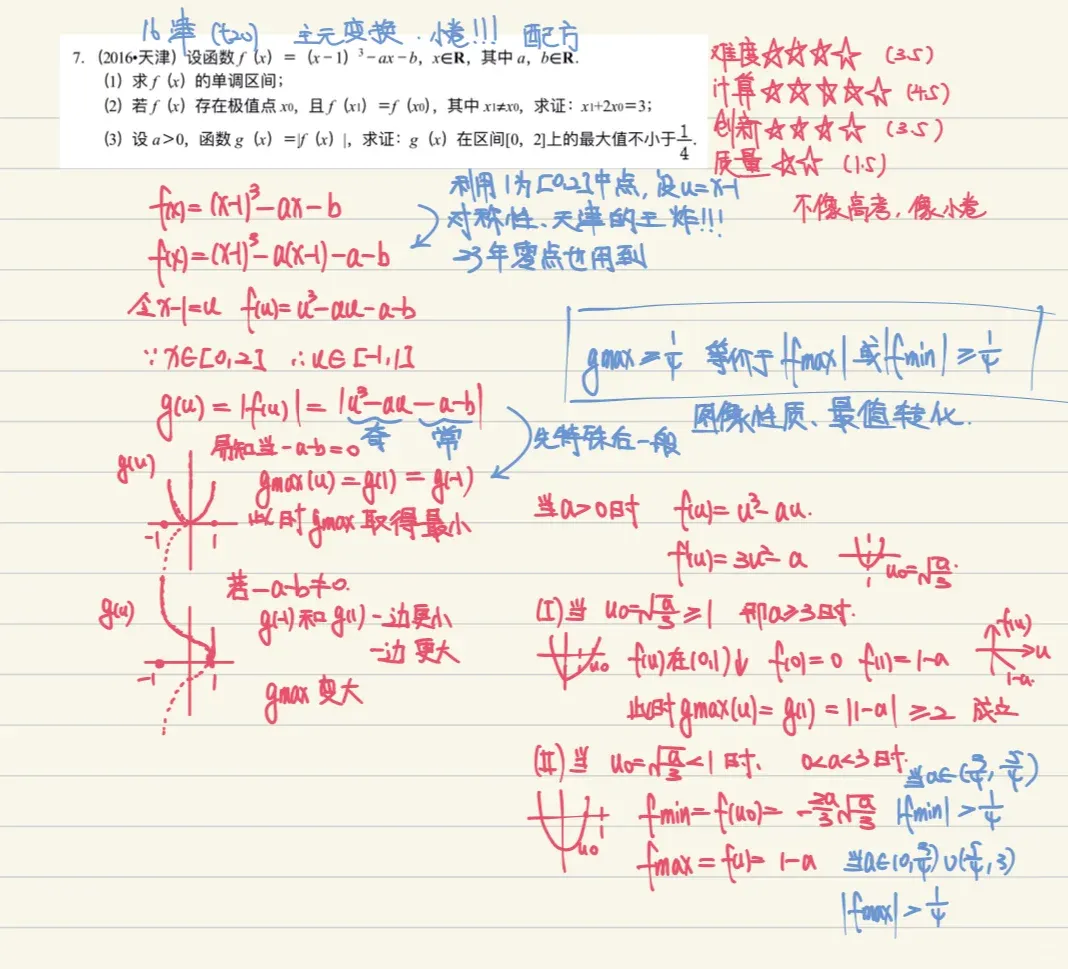 16津 (t20) 主元变换. 小卷!!! 配方
7. (2016•天津) 设函数 f (x) = (x-1) ³-ax-b, x∈R, 其中 a, b∈R.
(1) 求 f (x) 的单调区间;
(2) 若 f (x) 存在极值点 x₀, 且 f (x₁) =f (x₀), 其中 x₁≠x₀, 求证: x₁+2x₀=3;
(3) 设 a>0, 函数 g (x) =|f (x) |, 求证: g (x) 在区间[0, 2]上的最大值不小于1/4.
难度☆☆☆☆ (3.5)
计算☆☆☆☆☆ (4.5)
创新☆☆☆☆ (3.5)
质量☆☆ (1.5)
不像高考, 像小卷
f(x)=(x-1)³-ax-b
f(x)=(x-1)³-a(x-1)-a-b
利用1为[0,2]中点, 设u=x-1
对称性、天津的王炸!!!
23年零点也用到
令x-1=u f(u)=u³-au-a-b
∵x∈[0,2] ∴u∈[-1,1]
g(u)=|f(u)|=|u³-au-a-b|
奇 常
先特殊后一般
gmax≥1/4 等价于|fmax|或|fmin|≥1/4
图像性质、最值转化.
易知当-a-b=0
g(u)
gmax(u)=g(1)=g(-1)
此时gmax取得最小
-1 1
若-a-b≠0.
g(u)
g(-1)和g(1)一边更小
一边更大
-1 1
gmax变大
当a>0时 f(u)=u³-au.
f'(u)=3u²-a
1 u₀=√(a/3).
(I)当 u₀=√(a/3)≥1 即a≥3时.
u₀ f(u)在(0,1)↓ f(0)=0 f(1)=1-a
f(u) u
1-a
此时gmax(u)=g(1)=|1-a|≥2 成立
(II)当 u₀=√(a/3)<1时. 0<a<3时.
u₀ 1
fmin=f(u₀)=-2a/3√(a/3)
当a∈(3/4, 5/4)
|fmin|>1/4
fmax=f(1)=1-a
当a∈(0,3/4)∪(5/4,3)
|fmax|>1/4